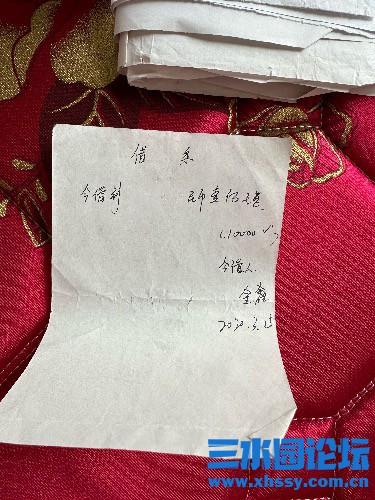 借条
今借到
(10000
今借人
金鑫
2020.3.25
三水园论坛
www.xhssy.com.cn